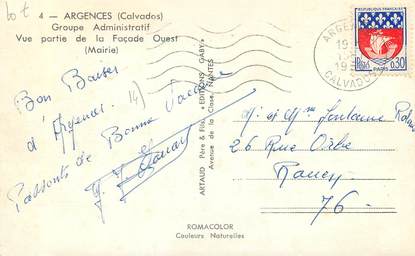 lot
4 — ARGENCES (Calvados)
Groupe Administratif
Vue partie de la Façade Ouest
(Mairie)
REPUBLIQUE FRANÇAISE
0,30
PARIS
ARGEN
19
CALVADOS
Bon Baiser
d'Argences.
14
de Bonne
ARTAUD Père & Fils "EDITIONS GABY"
Avenue de la Close, NANTES
M. et Mme Fontaine
26 Rue Orbe
Rouen
76 -
ROMACOLOR
Couleurs Naturelles